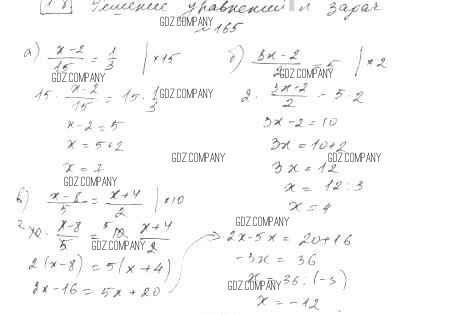 1.8 Решение уравнений и задач
GDZ.COMPANY
№165
а) x-2/15 = 1/3 | ×15
GDZ.COMPANY
15 · x-2/15 = 15 · 1/3 GDZ.COMPANY
x-2=5
x=5+2
x=7
GDZ.COMPANY
б) 3x-2/2 = 5 | ×2
GDZ.COMPANY
2 · 3x-2/2 = 5·2
3x-2=10
3x=10+2
GDZ.COMPANY GDZ.COMPANY
3x=12
x=12:3
x=4
в) x-8/5 = x+4/2 | ×10
10 · x-8/5 = 10 · x+4/2
GDZ.COMPANY
2(x-8)=5(x+4)
2x-16=5x+20
GDZ.COMPANY
2x-5x=20+16
-3x=36
x=36:(-3)
GDZ.COMPANY
x=-12